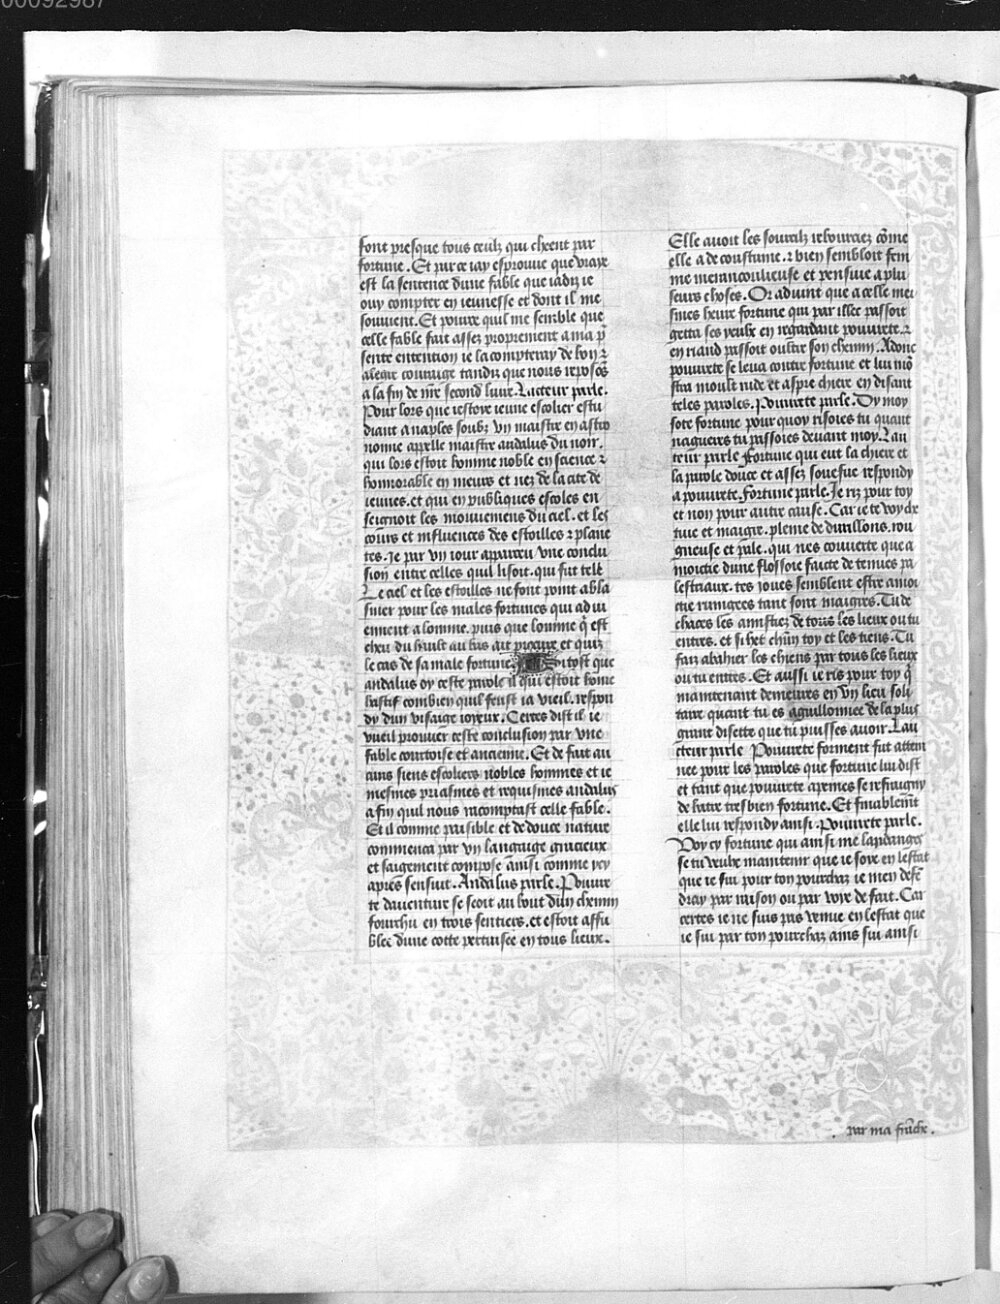 00092987
font presque tous ceulx qui cheent par
fortune. Et par ce iay esprouue que vraye
est la sentence dune fable que iadis ie
ouy compter en ieunesse et dont il me
souuient. Et pource quil me semble que
celle fable fait assez proprement a ma p̄
sente entention ie la compteray de bon ⁊
alegre couraige tandis que nous reposōs
a la fin de nr̄e second liure. Lacteur parle.
Pour lors que iestoye ieune escolier estu
diant a naples soubz vn maistre en astro
nomie appelle maistre andalus du noir.
qui lors estoit homme noble en science ⁊
honnorable en meurs et nez de la cite de
iennes. et qui en publiques escoles en
seignoit les mouuemens du ciel. et les
cours et influences des estoilles ⁊ plane
tes. Je par vn iour apparceu vne conclu
sion entre celles quil lisoit. qui fut telle
Le ciel et les estoilles ne font point a bla
smer pour les males fortunes qui ad ui
ennent a lomme. puis que lomme q̄ est
cheu du hault au bas ait procure et quiz
le cas de sa male fortune. Si tost que
andalus oy ceste parole il qui estoit home
hastif combien quil feust ia vieil. respon
dy dun visaige ioyeux. Certes dist il ie
vueil prouuer ceste conclusion par vne
fable courtoise et ancienne. Et de fait au
cuns siens escoliers nobles hommes et ie
mesmes priasmes et requismes andalus
a fin quil nous racomptast celle fable.
Et il comme paisible et de douce nature
commenca par vn langaige gracieux
et saigement compose ainsi comme ycy
apres sensuit. Andalus parle. Pouure
te dauenture se seoit au bout dun chemin
fourchu en trois sentiers. et estoit affu
blee dune cotte pertuisee en tous lieux.
Elle auoit les sourcilz rebourciez cōme
elle a de coustume. ⁊ bien sembloit fem
me merancolieuse et pensiue a plu
seurs choses. Or aduint que a celle mei
smes heure fortune qui par illec passoit
getta ses yeulx en regardant pouurete. ⁊
en riand passoit oultre son chemin. Adonc
pouurete se leua contre fortune et lui mō
stra moult rude et aspre chiere en disant
teles paroles. Pouurete parle. Dy moy
sote fortune pour quoy risoies tu quant
nagueres tu passoies deuant moy. Lau
teur parle Fortune qui eut la chiere et
la parole douce et assez souefue respondy
a pouurete. fortune parle. Je riz pour toy
et non pour autre cause. Car ie te voy
tue et maigre. pleine de durillons. rou
gneuse et pale. qui nes couuerte que a
moictie dune flossoie faicte de tenues pa
lestreaux. tes ioues semblent estre amoi
ctie rungees tant sont maigres. Tu de
chaces les amistiez de tous les lieux ou tu
entres. et si het chūn toy et les tiens. Tu
fais abahier les chiens par tous les lieux
ou tu entres. Et aussi ie ris pour toy q̄
maintenant demeures en vn lieu soli
taire quant tu es aguillonnee de la plus
grant disette que tu puisses auoir. Lau
cteur parle Pouurete forment fut attein
nee pour les paroles que fortune lui dist
et tant que pouurete apeines se refraigny
de batre tresbien fortune. Et finablem̄t
elle lui respondy ainsi. Pouurete parle.
Voy cy fortune qui ainsi me laydanges
se tu veulx maintenir que ie soye en lestat
que ie sui pour ton pourchaz ie men defē
dray par raison ou par voye de fait. Car
certes ie ne suis pas venue en lestat que
ie sui par ton pourchaz ains sui ainsi
par ma franche.